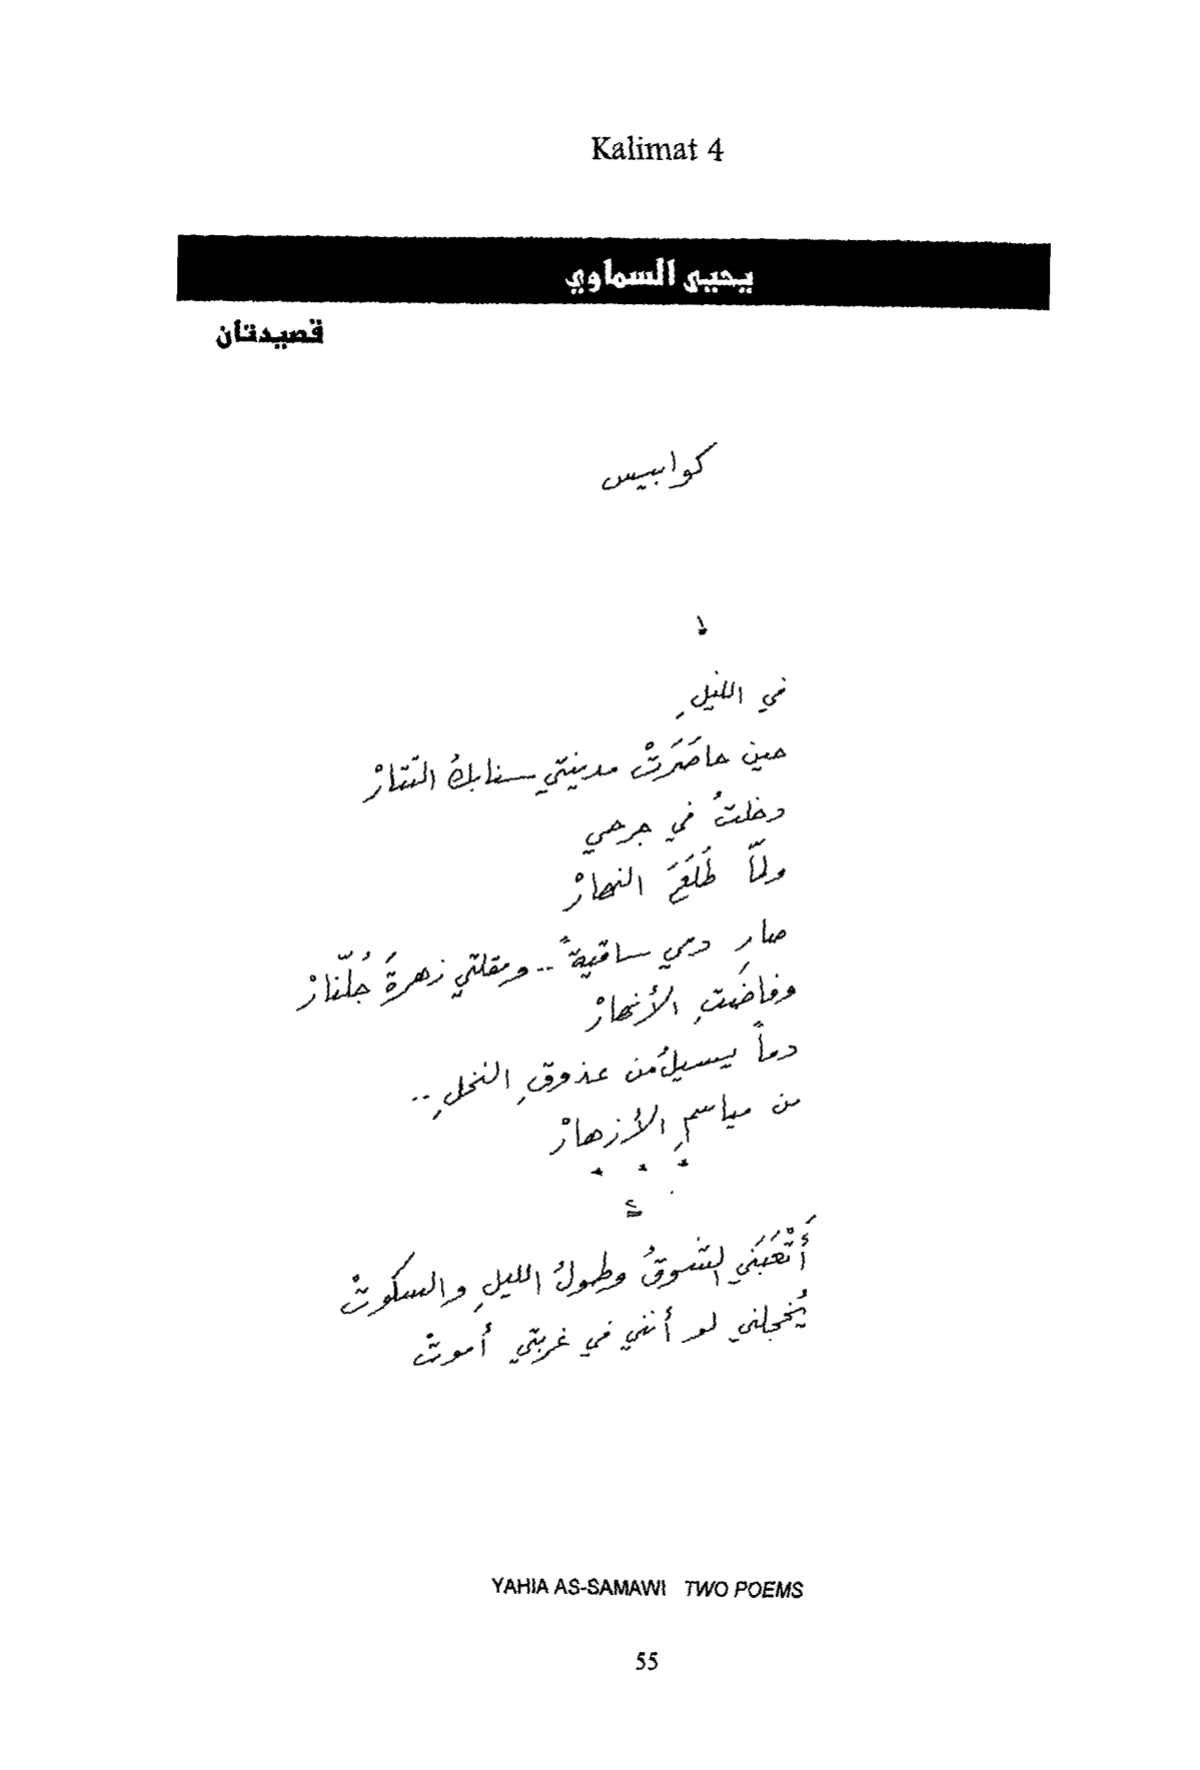 Kalimat 4
يحيى السماوي
قصيدتان
كوابيس
١
في الليلِ
حين حاصَرَتْ مدينتي سنابكُ التتارْ
دخلتُ في جرحي
ولمّا طَلَعَ النهارْ
صار دمي ساقيةً .. ومقلتي زهرةَ جُلّنارْ
وفاضَتِ الأنهارْ
دماً يسيلُ من عذوقِ النخلِ ..
من مياسمِ الأزهارْ
* * *
أَتْعَبَني الشوقُ وطولُ الليلِ والسكوتْ
يُخجلني لو أنني في غربتي أموتْ
YAHIA AS-SAMAWI TWO POEMS
55